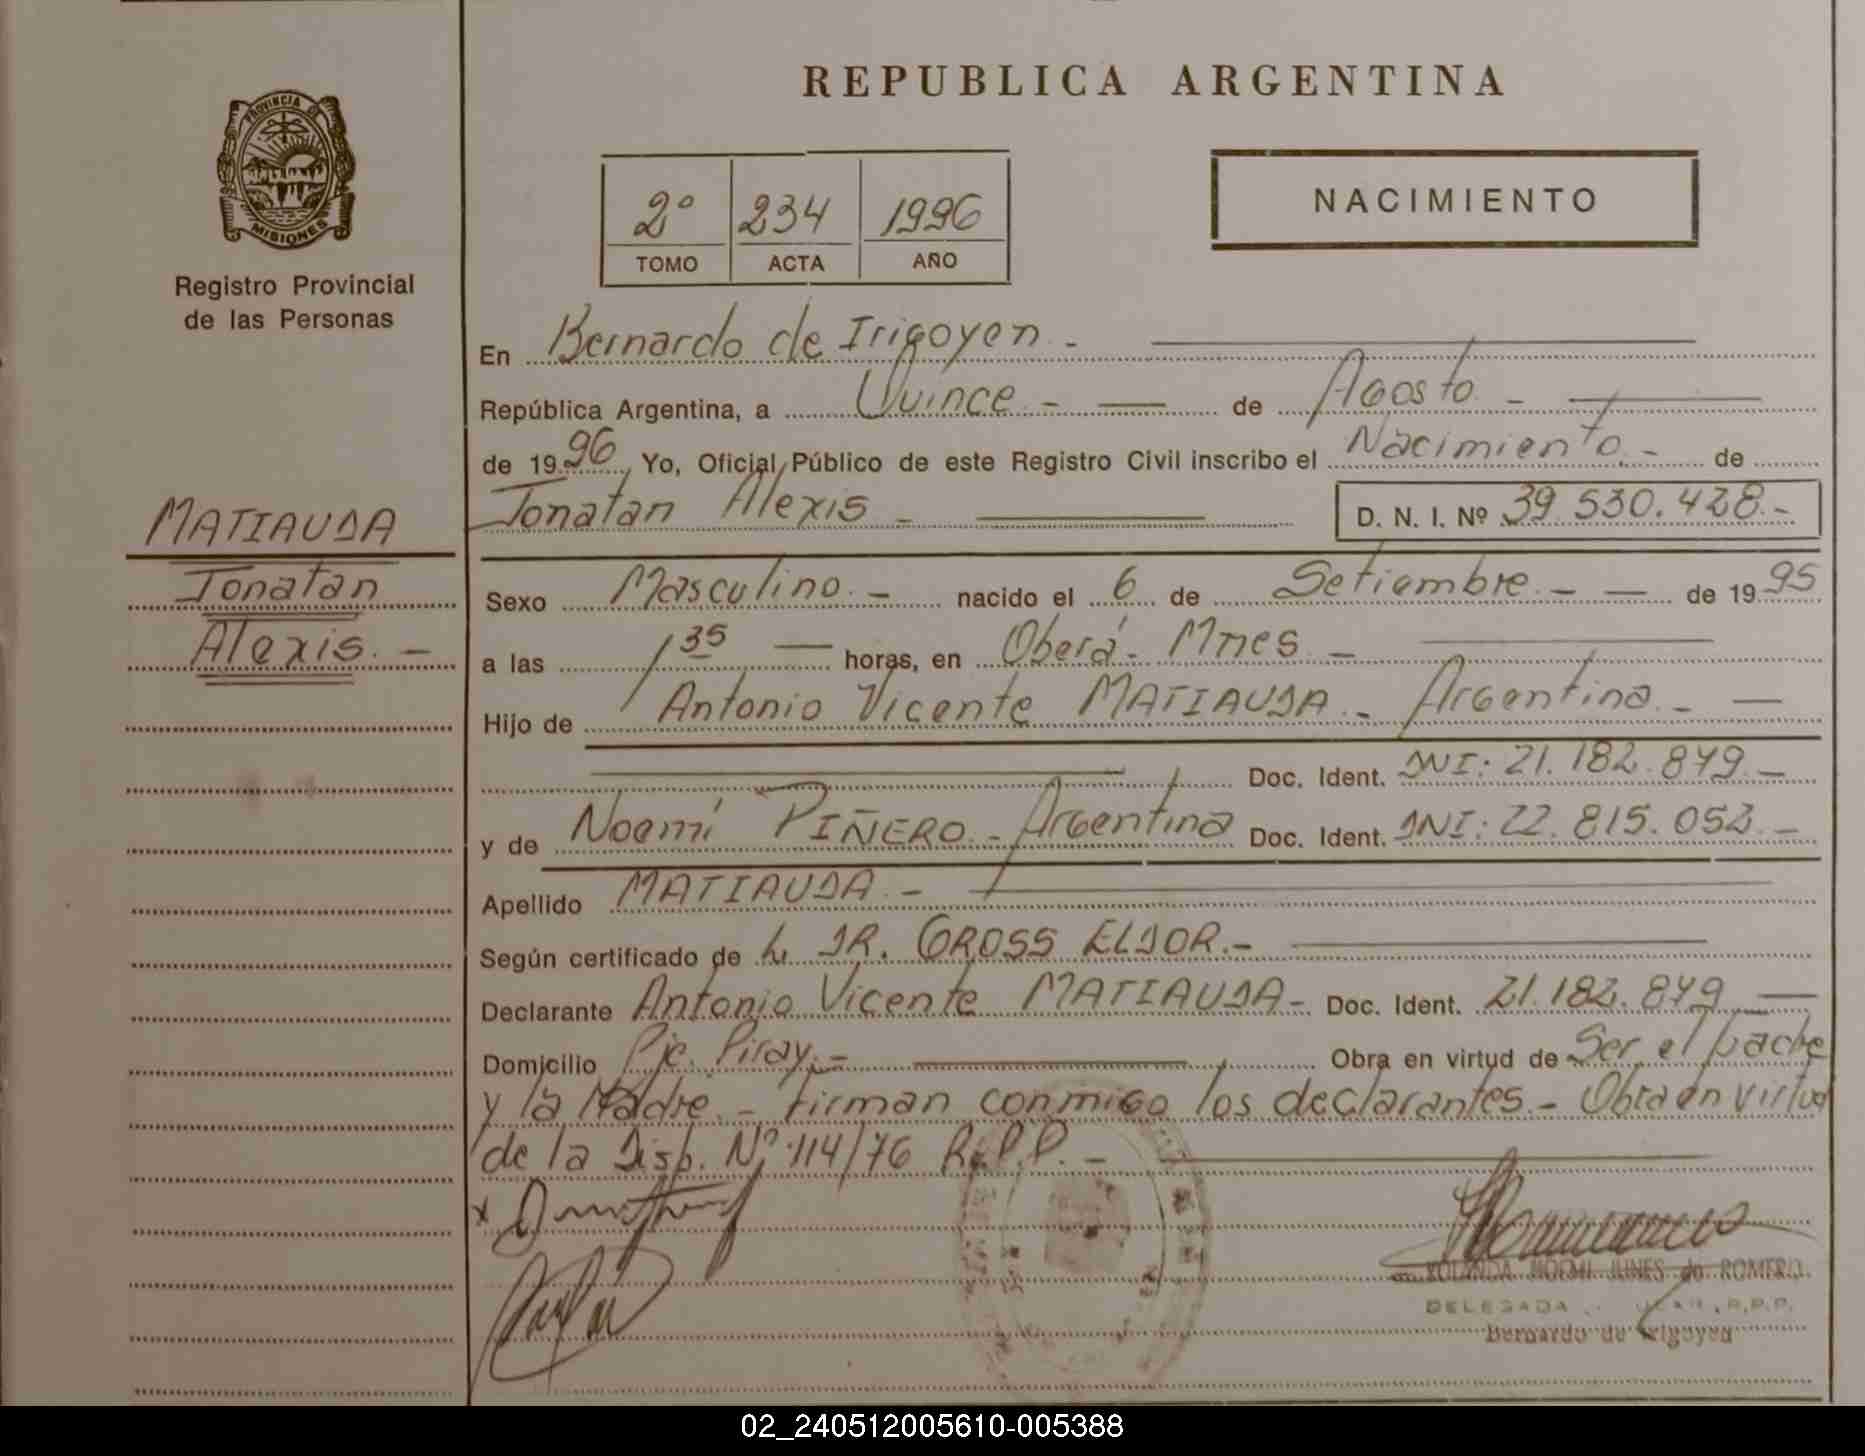 REPUBLICA ARGENTINA
PROVINCIA DE
MISIONES
Registro Provincial
de las Personas
2º 234 1996
TOMO ACTA AÑO
NACIMIENTO
En Bernardo de Irigoyen -
República Argentina, a Quince - de Agosto -
de 1996, Yo, Oficial Público de este Registro Civil inscribo el Nacimiento - de
Jonatan Alexis - D. N. I. Nº 39.530.428.-
MATIAUDA
Jonatan
Alexis. -
Sexo Masculino. - nacido el 6 de Setiembre. - de 1995
a las 1 35 horas, en Oberá - Mnes -
Hijo de Antonio Vicente MATIAUDA - Argentina -
Doc. Ident. DNI: 21.182.879 -
y de Noemí PIÑERO - Argentina Doc. Ident. DNI: 22.815.052 -
Apellido MATIAUDA. -
Según certificado de DR. GROSS ELDOR.-
Declarante Antonio Vicente MATIAUDA - Doc. Ident. 21.182.879
Domicilio Pje. Piray. - Obra en virtud de Ser el padre
y la Madre. - Firman conmigo los declarantes. - Obra en virtud
de la Disp. Nº 114/76 R.P.P. -
YOLANDA NOEMI JUNES de ROMERO
DELEGADA R.P.P.
Bernardo de Irigoyen
02_240512005610-005388